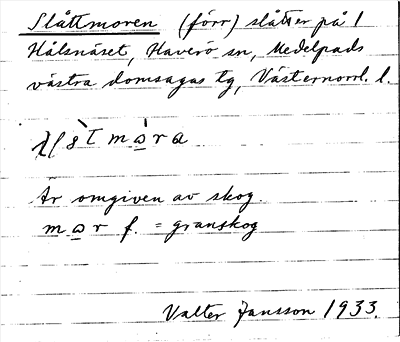 Slåttmoren (förr) slåtter på 1
Hålsnäset, Haverö sn, Medelpads
västra domsagas tg, Västernorrl. l.
mɷra
Är omgiven av skog.
mɷr f. = granskog
Valter Jansson 1933.